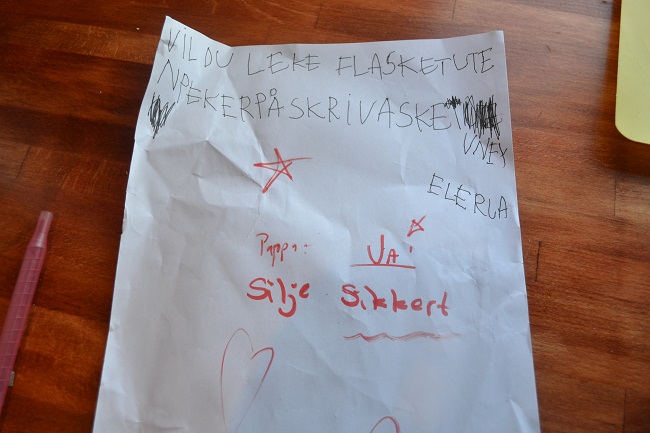 VIL DU LEKE FLASKETUTE
PEKERPÅSKRIVASKE
ELERJA
Pappa: JA!
Silje Sikkert